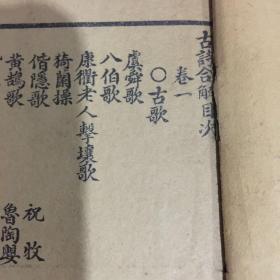 古詩合解目次
卷一
〇古歌
虞舜歌
八伯歌
康衢老人擊壤歌
猗蘭操
偕隱歌 祝牧
黃鵠歌 魯陶嬰